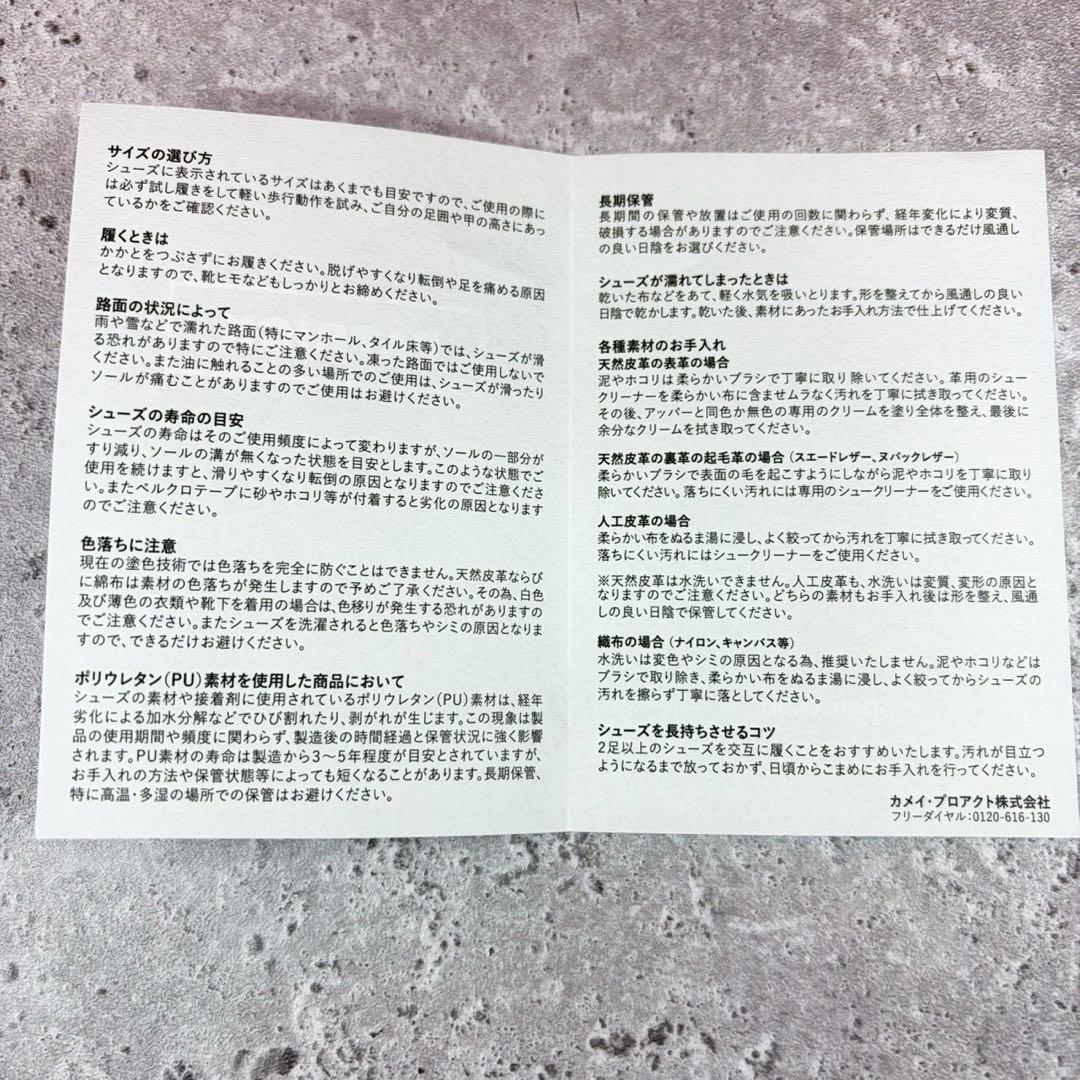 サイズの選び方
シューズに表示されているサイズはあくまでも目安ですので、ご使用の際に
は必ず試し履きをして軽い歩行動作を試み、ご自分の足囲や甲の高さにあっ
ているかをご確認ください。
履くときは
かかとをつぶさずにお履きください。脱げやすくなり転倒や足を痛める原因
となりますので、靴ヒモなどもしっかりとお締めください。
路面の状況によって
雨や雪などで濡れた路面(特にマンホール、タイル床等)では、シューズが滑
る恐れがありますので特にご注意ください。凍った路面ではご使用しないで
ください。また油に触れることの多い場所でのご使用は、シューズが滑ったり
ソールが痛むことがありますのでご使用はお避けください。
シューズの寿命の目安
シューズの寿命はそのご使用頻度によって変わりますが、ソールの一部分が
すり減り、ソールの溝が無くなった状態を目安とします。このような状態でご
使用を続けますと、滑りやすくなり転倒の原因となりますのでご注意くださ
い。またベルクロテープに砂やホコリ等が付着すると劣化の原因となります
のでご注意ください。
色落ちに注意
現在の塗色技術では色落ちを完全に防ぐことはできません。天然皮革ならび
に綿布は素材の色落ちが発生しますので予めご了承ください。その為、白色
及び薄色の衣類や靴下を着用の場合は、色移りが発生する恐れがありますの
でご注意ください。またシューズを洗濯されると色落ちやシミの原因となりま
すので、できるだけお避けください。
ポリウレタン(PU)素材を使用した商品において
シューズの素材や接着剤に使用されているポリウレタン(PU)素材は、経年
劣化による加水分解などでひび割れたり、剥がれが生じます。この現象は製
品の使用期間や頻度に関わらず、製造後の時間経過と保管状況に強く影響
されます。PU素材の寿命は製造から3〜5年程度が目安とされていますが、
お手入れの方法や保管状態等によっても短くなることがあります。長期保管、
特に高温・多湿の場所での保管はお避けください。
長期保管
長期間の保管や放置はご使用の回数に関わらず、経年変化により変質、
破損する場合がありますのでご注意ください。保管場所はできるだけ風通し
の良い日陰をお選びください。
シューズが濡れてしまったときは
乾いた布などをあて、軽く水気を吸いとります。形を整えてから風通しの良い
日陰で乾かします。乾いた後、素材にあったお手入れ方法で仕上げてください。
各種素材のお手入れ
天然皮革の表革の場合
泥やホコリは柔らかいブラシで丁寧に取り除いてください。革用のシュー
クリーナーを柔らかい布に含ませムラなく汚れを丁寧に拭き取ってください。
その後、アッパーと同色か無色の専用のクリームを塗り全体を整え、最後に
余分なクリームを拭き取ってください。
天然皮革の裏革の起毛革の場合(スエードレザー、ヌバックレザー)
柔らかいブラシで表面の毛を起こすようにしながら泥やホコリを丁寧に取り
除いてください。落ちにくい汚れには専用のシュークリーナーをご使用ください。
人工皮革の場合
柔らかい布をぬるま湯に浸し、よく絞ってから汚れを丁寧に拭き取ってください。
落ちにくい汚れにはシュークリーナーをご使用ください。
※天然皮革は水洗いできません。人工皮革も、水洗いは変質、変形の原因と
なりますのでご注意ください。どちらの素材もお手入れ後は形を整え、風通
しの良い日陰で保管してください。
織布の場合(ナイロン、キャンバス等)
水洗いは変色やシミの原因となる為、推奨いたしません。泥やホコリなどは
ブラシで取り除き、柔らかい布をぬるま湯に浸し、よく絞ってからシューズの
汚れを擦らず丁寧に落としてください。
シューズを長持ちさせるコツ
2足以上のシューズを交互に履くことをおすすめいたします。汚れが目立つ
ようになるまで放っておかず、日頃からこまめにお手入れを行ってください。
カメイ・プロアクト株式会社
フリーダイヤル:0120-616-130